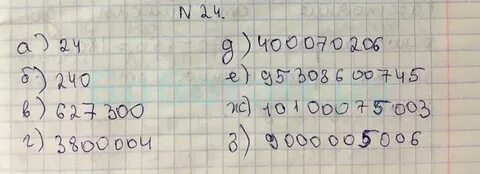 N 24.
а) 24
б) 240
в) 627300
г) 3800004
д) 400070206
е) 95308600745
ж) 10100075003
з) 9000005006